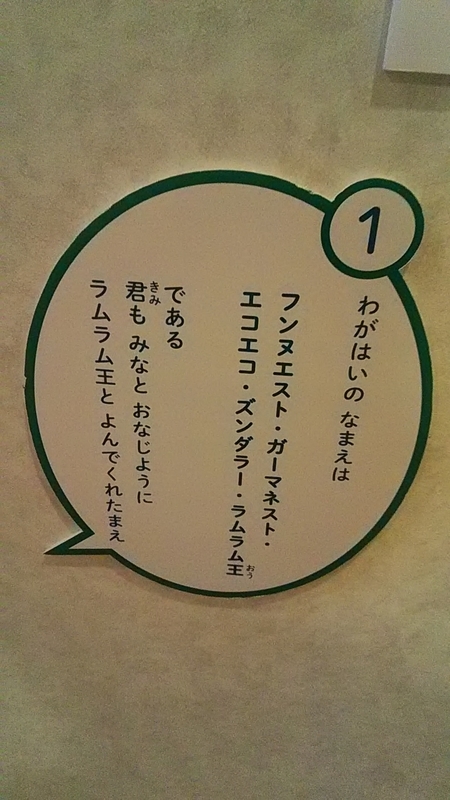 1
わがはいの なまえは
フンヌエスト・ガーマネスト・
エコエコ・ズンダラー・ラムラム王
おう
である
君も みなと おなじように
きみ
ラムラム王と よんでくれたまえ